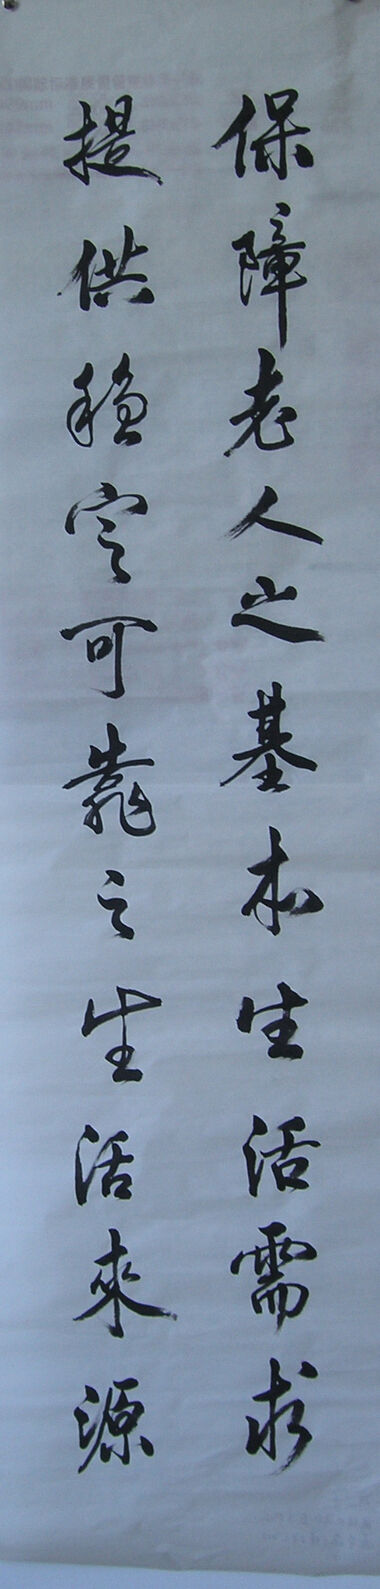 保障老人之基本生活需求
提供穩定可靠之生活來源